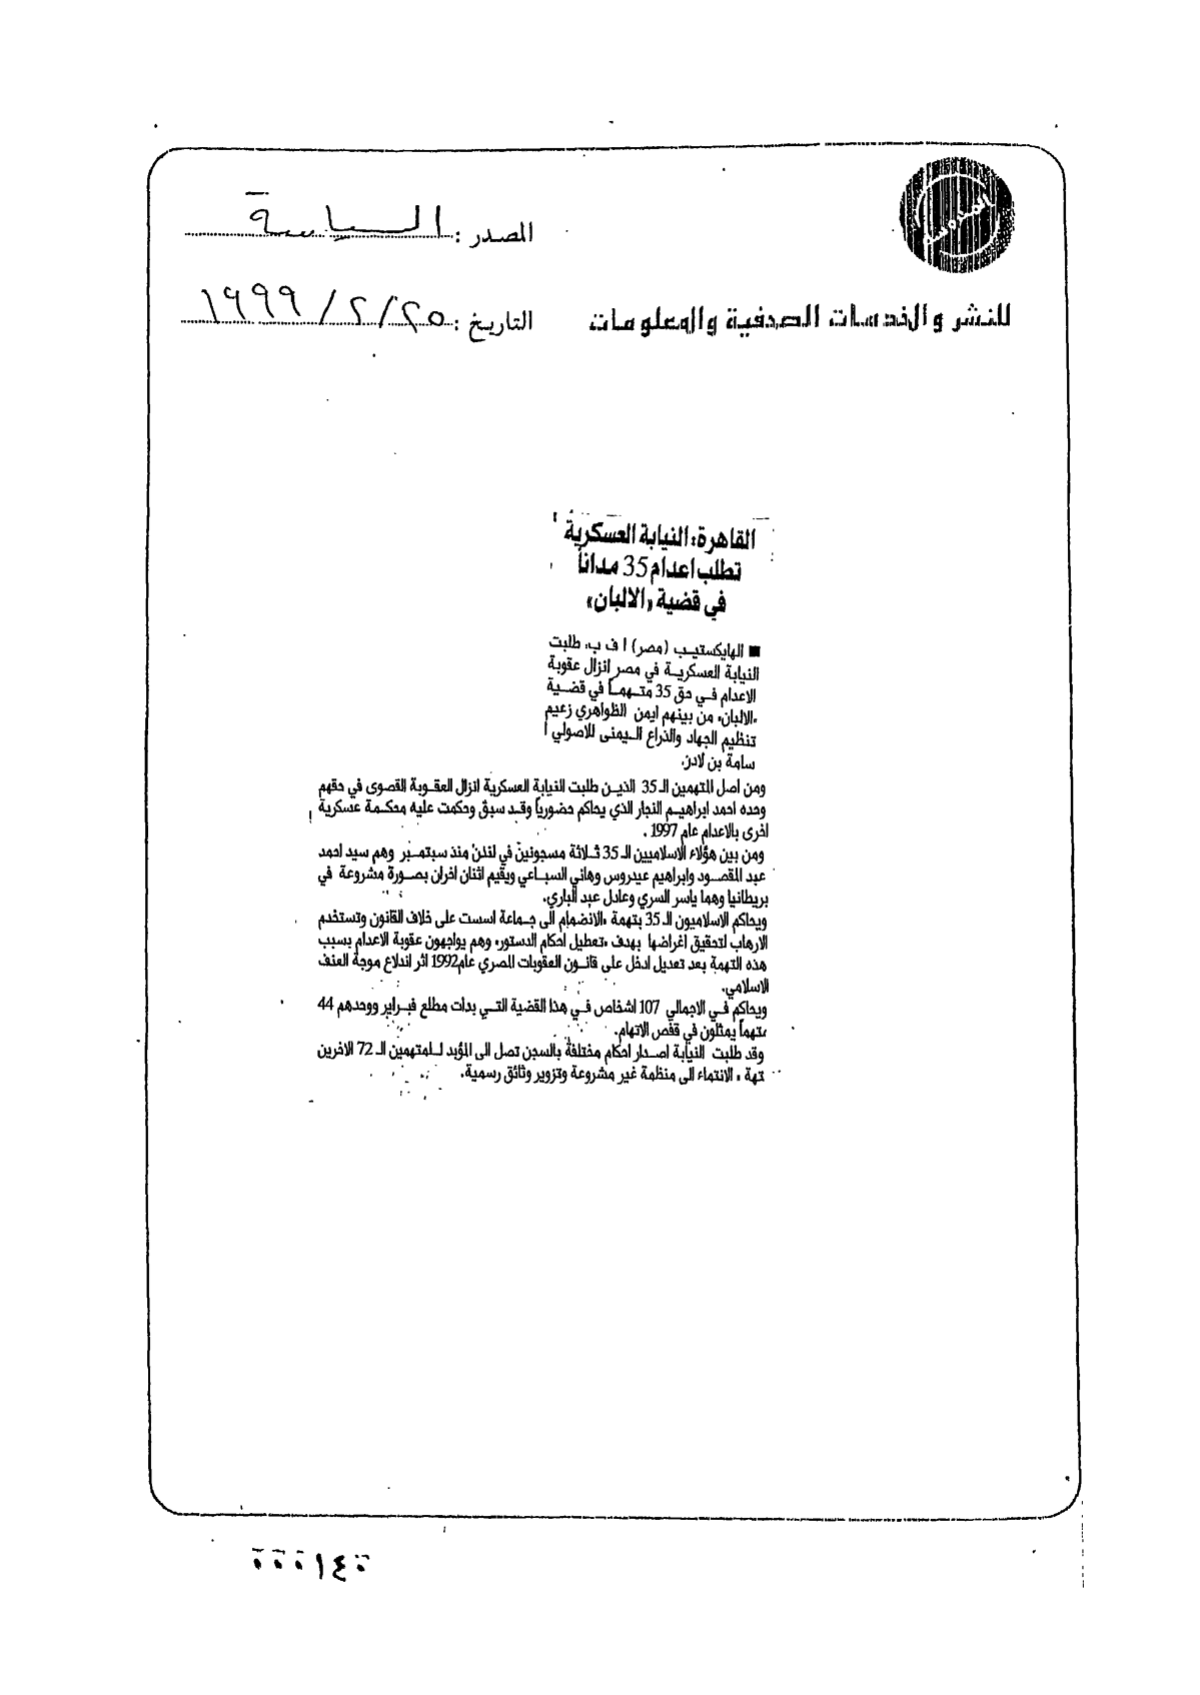 المصدر : السياسة
للنشر والخدمات الصحفية والمعلومات
التاريخ : ٢٥ / ٢ / ١٩٩٩
القاهرة: النيابة العسكرية
تطلب اعدام 35 مداناً
في قضية «الالبان»
■ الهايكستيب (مصر) ا ف ب. طلبت
النيابة العسكرية في مصر انزال عقوبة
الاعدام في حق 35 متهماً في قضية
«الالبان» من بينهم ايمن الظواهري زعيم
تنظيم الجهاد والذراع اليمنى للاصولي ا
سامة بن لادن.
ومن اصل المتهمين الـ 35 الذين طلبت النيابة العسكرية انزال العقوبة القصوى في حقهم
وحده احمد ابراهيم النجار الذي يحاكم حضورياً وقد سبق وحكمت عليه محكمة عسكرية
اخرى بالاعدام عام 1997 .
ومن بين هؤلاء الاسلاميين الـ 35 ثلاثة مسجونين في لندن منذ سبتمبر وهم سيد احمد
عبد المقصود وابراهيم عيدروس وهاني السباعي ويقيم اثنان اخران بصورة مشروعة في
بريطانيا وهما ياسر السري وعادل عبد الباري.
ويحاكم الاسلاميون الـ 35 بتهمة «الانضمام الى جماعة اسست على خلاف القانون وتستخدم
الارهاب لتحقيق اغراضها بهدف «تعطيل احكام الدستور» وهم يواجهون عقوبة الاعدام بسبب
هذه التهمة بعد تعديل ادخل على قانون العقوبات المصري عام1992 اثر اندلاع موجة العنف
الاسلامي.
ويحاكم في الاجمالي 107 اشخاص في هذا القضية التي بدات مطلع فبراير ووحدهم 44
متهماً يمثلون في قفص الاتهام.
وقد طلبت النيابة اصدار احكام مختلفة بالسجن تصل الى المؤبد للمتهمين الـ 72 الاخرين
تهة « الانتماء الى منظمة غير مشروعة وتزوير وثائق رسمية.